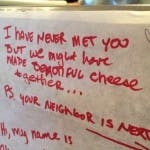 I HAVE NEVER MET YOU
BUT WE MIGHT HAVE
MADE BEAUTIFUL CHEESE
together...
PS. YOUR NEIGHBOR IS
Hi, my name is